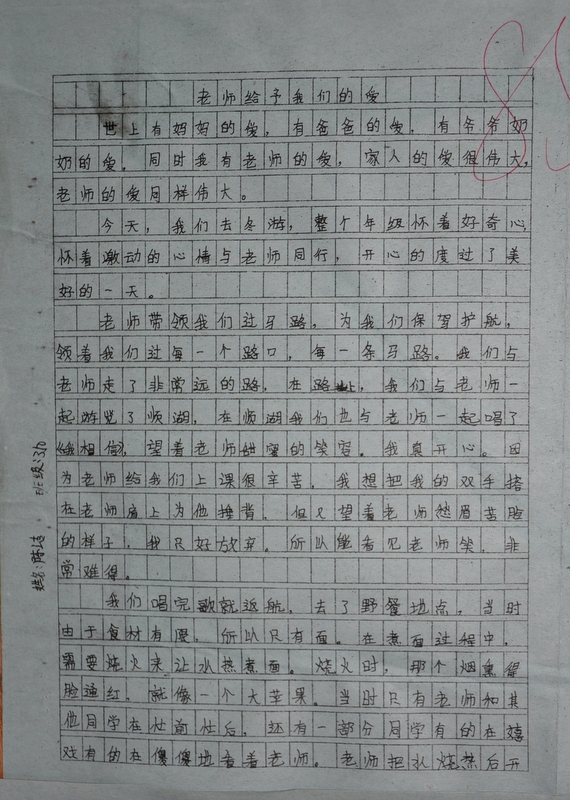 老师给予我们的爱
世上有妈妈的爱，有爸爸的爱，有爷爷奶
奶的爱。同时我有老师的爱，家人的爱很伟大，
老师的爱同样伟大。
今天，我们去冬游，整个年级怀着好奇心，
怀着激动的心情与老师同行，开心的度过了美
好的一天。
老师带领我们过马路，为我们保驾护航，
领着我们过每一个路口，每一条马路。我们与
老师走了非常远的路，在路上，我们与老师一
起游览了顺湖，在顺湖我们也与老师一起唱了
《我相信》，望着老师甜蜜的笑容。我真开心。因
为老师给我们上课很辛苦，我想把我的双手搭
在老师肩上为他捶背，但又望着老师愁眉苦脸
的样子，我只好放弃。所以能看见老师笑，非
常难得。
我们唱完歌就返航，去了野餐地点。当时
由于食材有限，所以只有面。在煮面过程中，
需要烧火来让水热煮面。烧火时，那个烟熏得
脸通红，就像一个大苹果。当时只有老师和其
他同学在灶前灶后，还有一部分同学有的在嬉
戏有的在傻傻地看着老师。老师把水烧热后开
班级：310
姓名：